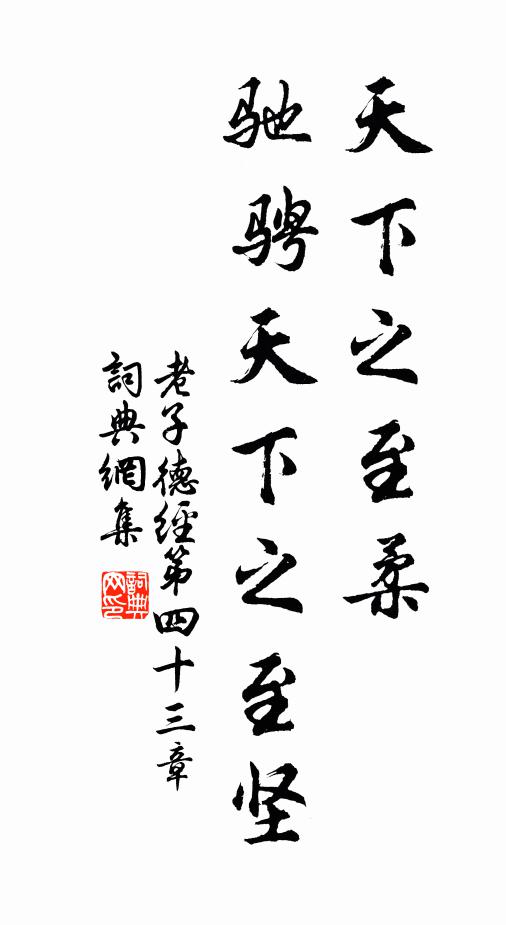 天下之至柔
驰骋天下之至坚
老子德經第四十三章
詞典網集
詞典网印